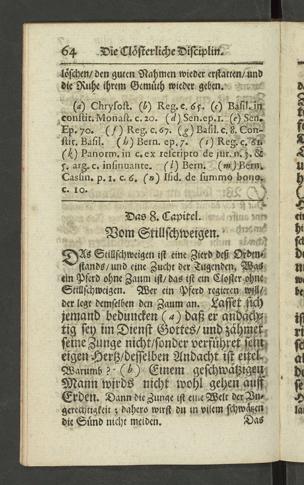 64 Die Clösterliche Disciplin.
löschen/ den guten Nahmen wieder erstatten/ und
die Ruhe ihrem Gemüth wieder geben.
(a) Chrysost. (b) Reg. c. 65. (c) Basil. in
constit. Monast. c. 20. (d) Sen. ep. 1. (e) Sen.
Ep. 70. (f) Reg. c. 67. (g) Basil. c. 8. Con-
stit. Basil. (h) Bern. ep. 7. (i) Reg. c. 61.
(k) Panorm. in c. ex rescripto de jur. n. 3. &
5. arg. c. insinuante. (l) Bern. (m) Bern.
Casin. p. 1. c. 6. (n) Isid. de summo bono.
c. 10.
Das 8. Capitel.
Vom Stillschweigen.
DAs Stillschweigen ist eine Zierd deß Ordens-
stands/ und eine Zucht der Tugenden. Was
ein Pferd ohne Zaum ist/ das ist ein Closter ohne
Stillschweigen. Wer ein Pferd regieren will/
der legt demselben den Zaum an. Lasset sich
jemand beduncken (a) daß er andäch-
tig sey im Dienst Gottes/ und zähmet
seine Zunge nicht/ sonder verführet sein
eigen Hertz/ desselben Andacht ist eitel.
Warumb? (b) Einem geschwätzigen
Mann wirds nicht wohl gehen auff
Erden. Dann die Zunge ist eine Welt der Un-
gerechtigkeit; dahero wirst du in vilem schwätzen
die Sünd nicht meiden. Das